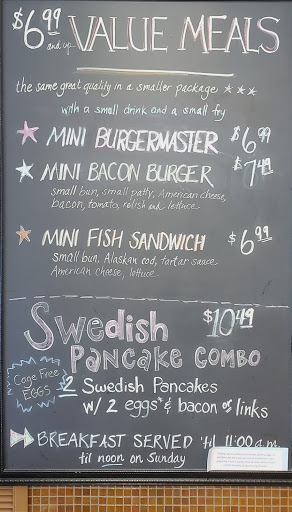 $6.99 and up VALUE MEALS
the same great quality in a smaller package ★★★
with a small drink and a small fry
★ MINI BURGERMASTER $6.99
★ MINI BACON BURGER $7.49
small bun, small patty, American cheese,
bacon, tomato, relish and lettuce
★ MINI FISH SANDWICH $6.99
small bun, Alaskan cod, tartar sauce
American cheese, lettuce
Swedish $10.49
PANCAKE COMBO
Cage Free EGGS
2 Swedish Pancakes
w/ 2 eggs* & bacon or links
BREAKFAST SERVED 'til 11:00 a.m.
til noon on Sunday